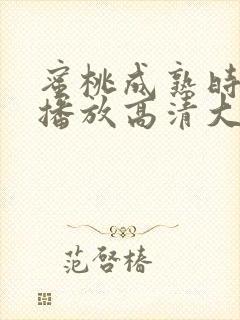 蜜桃成熟时
播放高清大
范啓椿